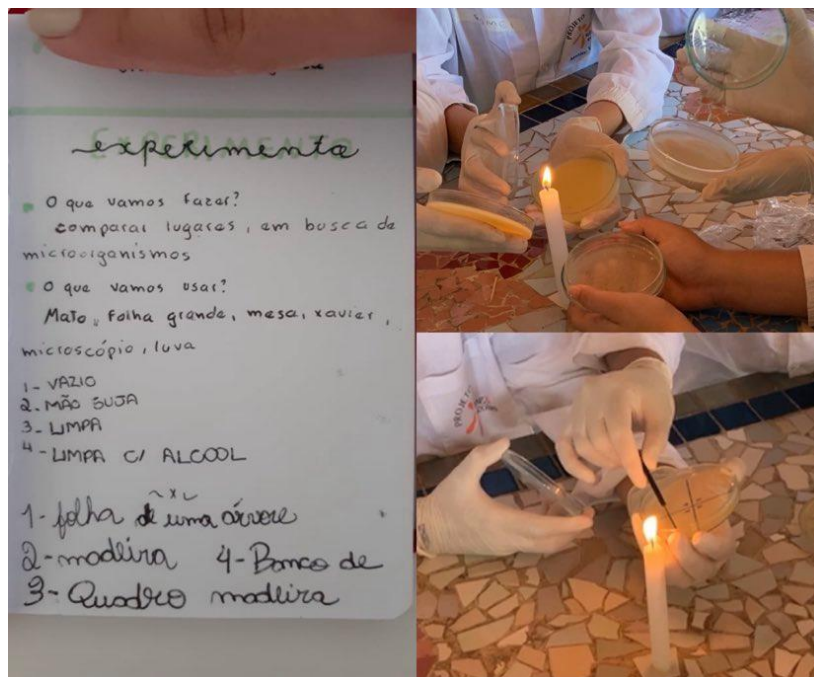 EXPERIMENTO
experimento
O que vamos fazer?
comparar lugares, em busca de
microorganismos
O que vamos usar?
Mato, folha grande, mesa, xavier,
microscópio, luva
1- VAZIO
2. MÃO SUJA
3- LIMPA
4- LIMPA C/ ALCOOL
1- folha de uma árvore
2- madeira 4- Banco de
3- Quadro madeira
PROJETO
PROJETO